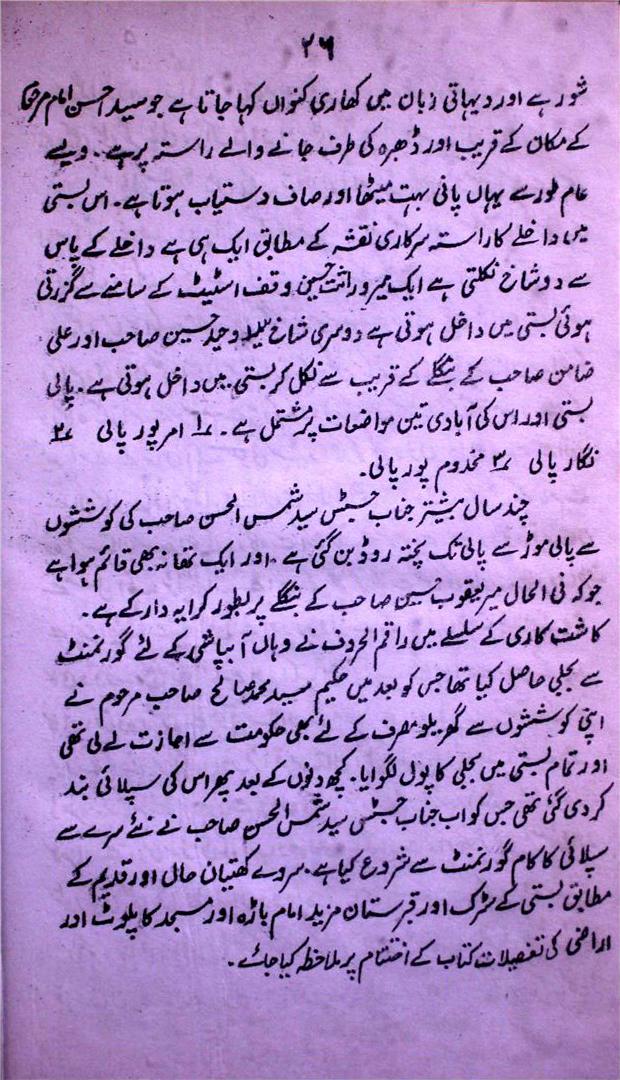 ۲۶
شور ہے اور دیہاتی زبان میں کھاری کنواں کہا جاتا ہے جو سید احسن امام مرحوم
کے مکان کے قریب اور ڈھرہ کی طرف جانے والے راستہ پر ہے۔ ویسے
عام طور سے یہاں پانی بہت میٹھا اور صاف دستیاب ہوتا ہے۔ اس بستی
میں داخلے کا راستہ سرکاری نقشہ کے مطابق ایک ہی ہے داخلے کے پاس
سے دو شاخ نکلتی ہے ایک میر وراثت حسین وقف اسٹیٹ کے سامنے سے گزرتی
ہوئی بستی میں داخل ہوتی ہے دوسری شاخ سید وحید حسین صاحب اور علی
ضامن صاحب کے بنگلے کے قریب سے نکل کر بستی میں داخل ہوتی ہے۔ پالی
بستی اور اس کی آبادی تین مواضعات پر مشتمل ہے۔ ۱؎ امر پور پالی ۲؎
نگار پالی ۳؎ مخدوم پور پالی۔
چند سال پیشتر جناب جسٹس سید شمس الحسن صاحب کی کوششوں
سے پالی موڑ سے پالی تک پختہ روڈ بن گئی ہے۔ اور ایک تھانہ بھی قائم ہوا ہے
جو کہ فی الحال میر یعقوب حسین صاحب کے بنگلے پر بطور کرایہ دار کے ہے۔
کاشت کاری کے سلسلے میں راقم الحروف نے وہاں آبپاشی کے لئے گورنمنٹ
سے بجلی حاصل کیا تھا جس کو بعد میں حکیم سید محمد صالح صاحب مرحوم نے
اپنی کوششوں سے گھریلو مصرف کے لئے بجلی حکومت سے اجازت لے لی تھی
اور تمام بستی میں بجلی کا پول لگوایا۔ کچھ دنوں کے بعد پھر اس کی سپلائی بند
کر دی گئی تھی جس کو اب جناب جسٹس سید شمس الحسن صاحب نے نئے سرے سے
سپلائی کا کام گورنمنٹ سے شروع کیا ہے۔ سروے کھتیان حال اور قدیم کے
مطابق بستی کے سڑک اور قبرستان مزید امام باڑہ اور مسجد کا پلوٹ اور
اراضی کی تفصیلات کتاب کے اختتام پر ملاحظہ کیا جائے۔